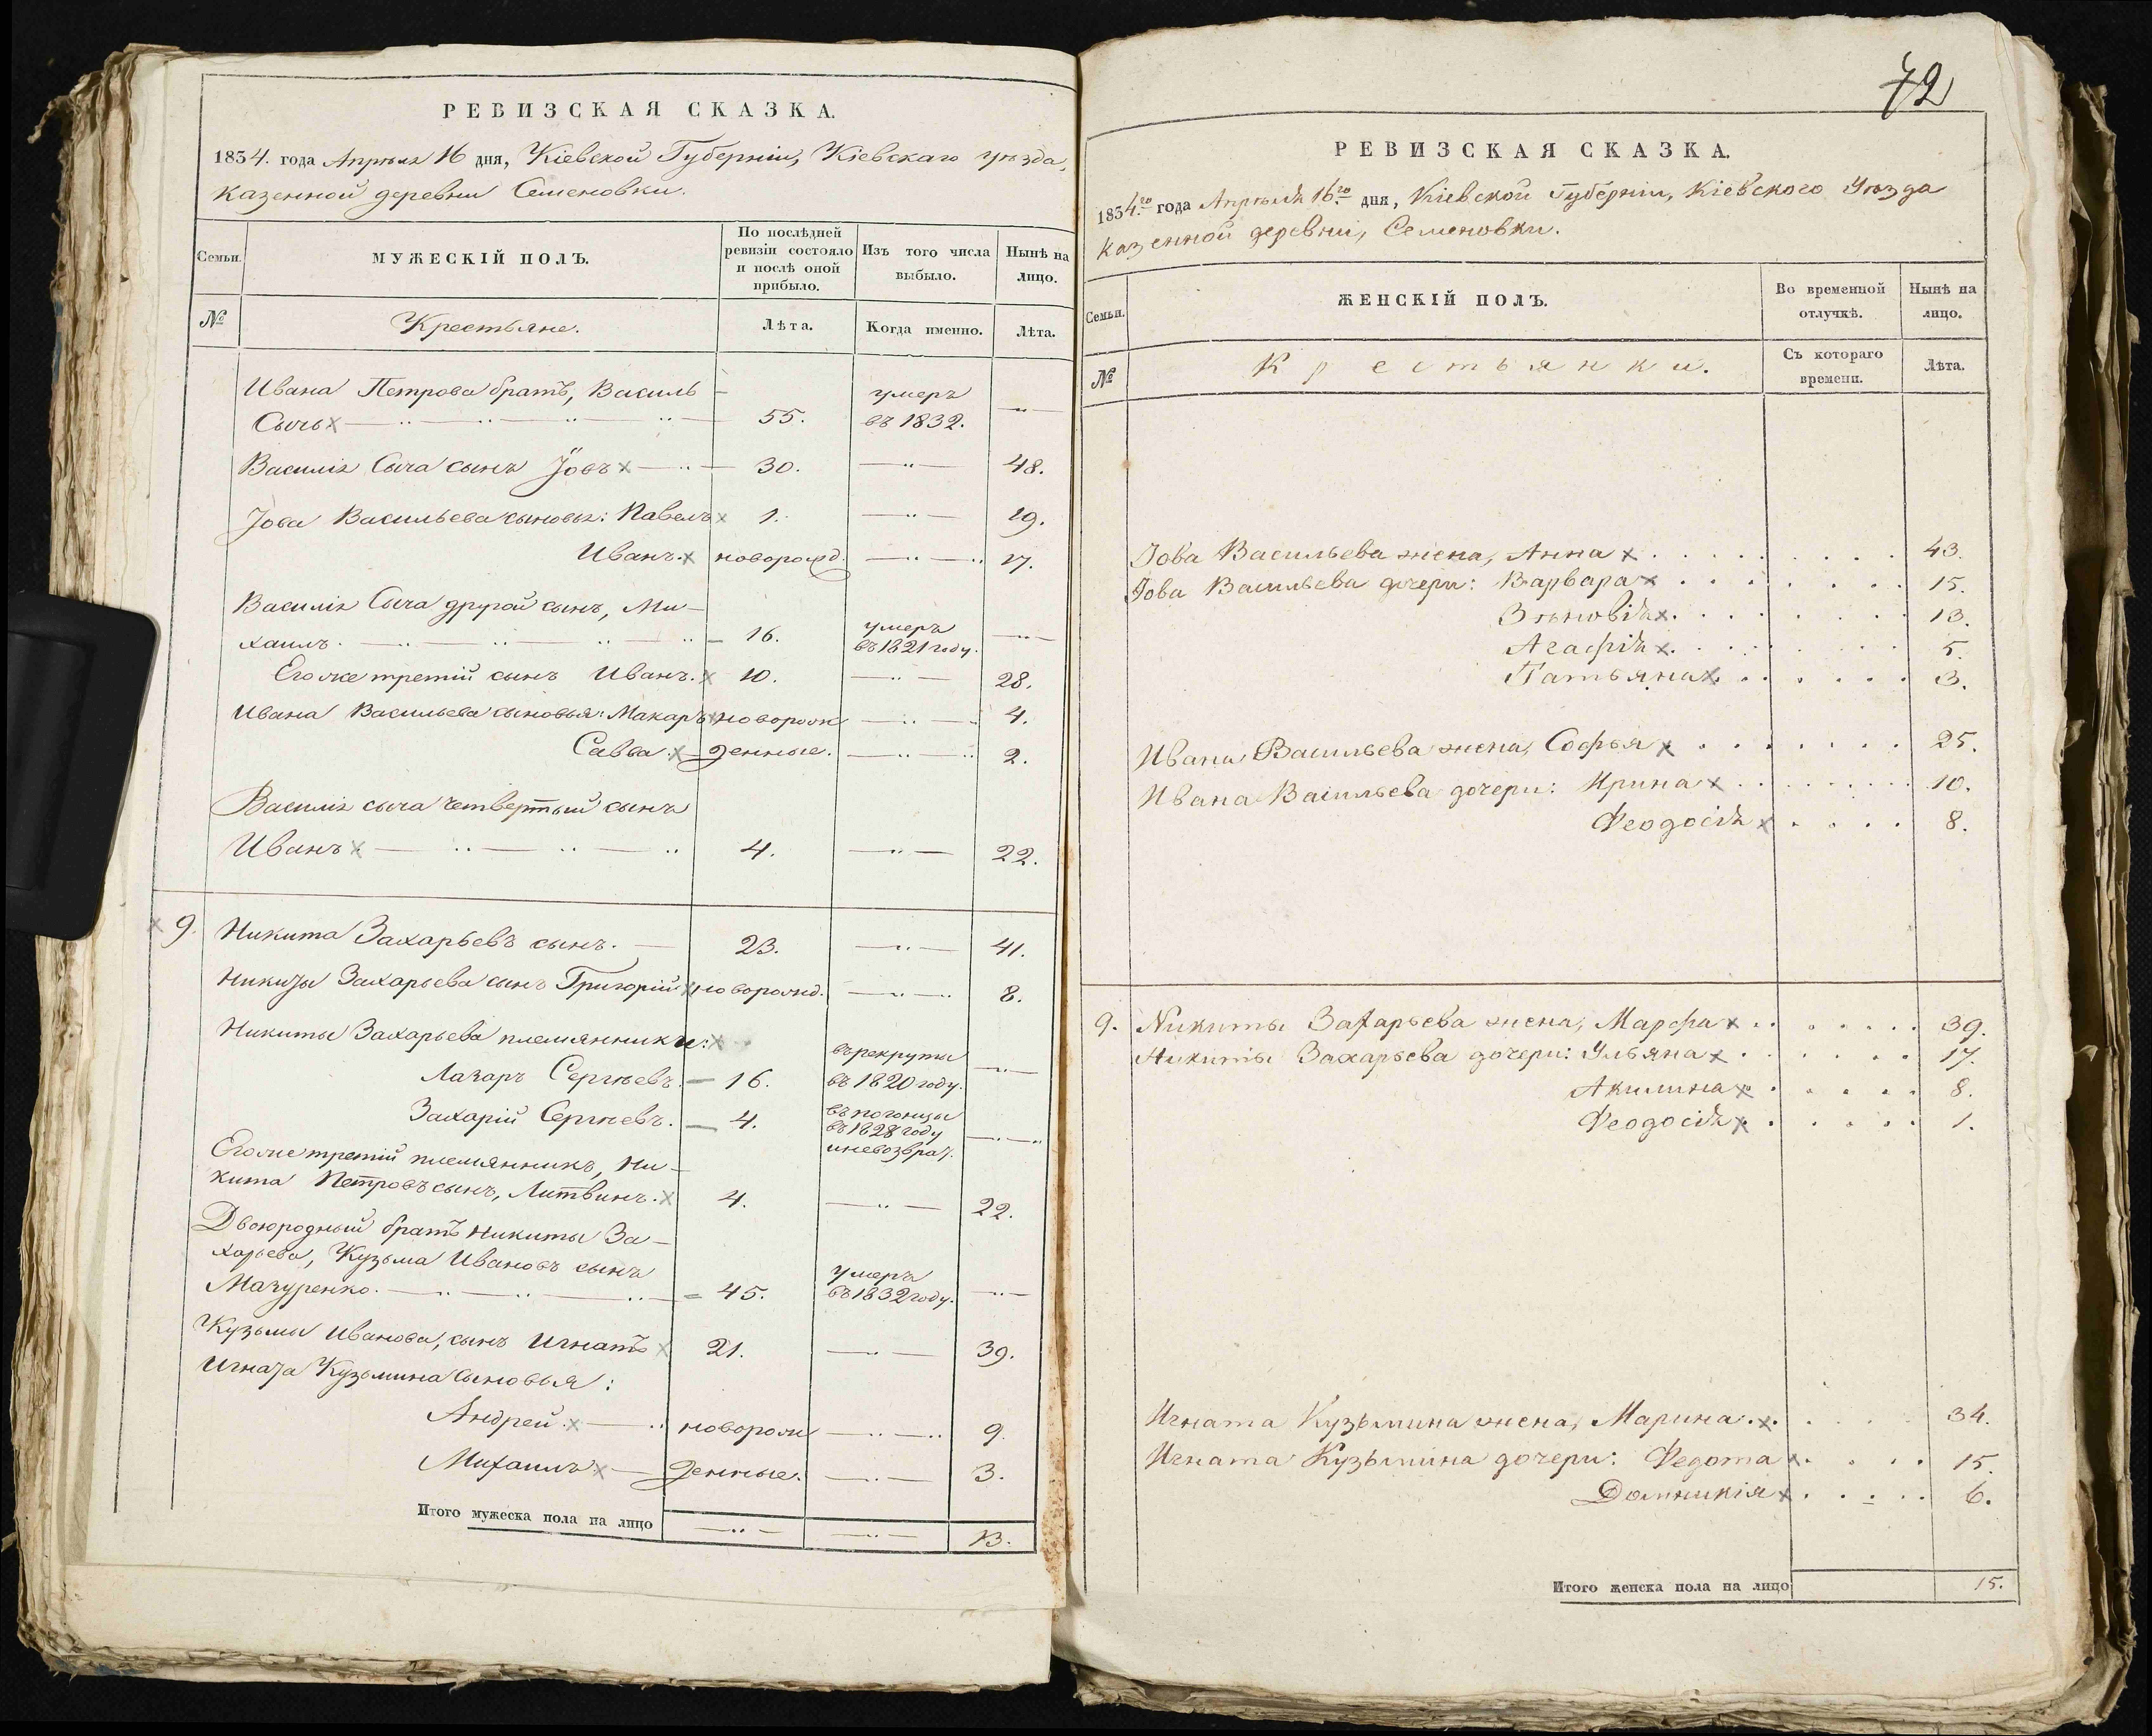 РЕВИЗСКАЯ СКАЗКА.
1834. года Апрѣля 16 дня, Кіевской Губерніи, Кіевскаго уѣзда,
казенной деревни Семеновки.
Семьи. МУЖЕСКІЙ ПОЛЪ. По послѣдней ревизіи состояло и послѣ оной прибыло. Изъ того числа выбыло. Нынѣ на лицо.
№ Крестьяне. Лѣта. Когда именно. Лѣта.
Ивана Петрова братъ, Василь умеръ
Сычь 55. въ 1832.
Василія Сыча сынъ Іовъ 30. 48.
Іова Васильева сыновья: Павелъ 1. 19.
Иванъ. новорожд. 17.
Василія Сыча другой сынъ, Ми-
хаилъ. 16. умеръ въ 1821 году.
Его же третій сынъ Иванъ. 10. 28.
Ивана Васильева сыновья: Макаръ новорож 4.
Савва. денные. 2.
Василія сыча четвертый сынъ
Иванъ 4. 22.
9. Никита Захарьевъ сынъ. 23. 41.
Никиты Захарьева сынъ Григорій новорожд. 8.
Никиты Захарьева племянники:
Лазарь Сергѣевъ. 16. въ рекруты въ 1820 году.
Захарій Сергѣевъ. 4. въ погонцы въ 1828 году и невозврат.
Его же третій племянникъ, Ни-
кита Петровъ сынъ, Литвинъ. 4. 22.
Двоюродный братъ Никиты За-
харьева, Кузьма Ивановъ сынъ
Мазуренко. 45. умеръ въ 1832 году.
Кузьмы Иванова, сынъ Игнатъ 21. 39.
Игната Кузьмина сыновья:
Андрей. новорож 9.
Михаилъ денные. 3.
Итого мужеска пола на лицо 13.
72
РЕВИЗСКАЯ СКАЗКА.
1834.го года Апрѣля 16.го дня, Кіевской Губерніи, Кіевского Уѣзда
казенной деревни, Семеновки.
Семьи. ЖЕНСКІЙ ПОЛЪ. Во временной отлучкѣ. Нынѣ на лицо.
№ Крестьянки. Съ котораго времени. Лѣта.
Іова Васильева жена, Анна 43.
Іова Васильева дочери: Варвара 15.
Зѣновія 13.
Агафія 5.
Татьяна 3.
Ивана Васильева жена, Софья 25.
Ивана Васильева дочери: Ирина 10.
Феодосія 8.
9. Никиты Захарьева жена, Марфа 39.
Никиты Захарьева дочери: Ульяна 17.
Акилина 8.
Феодосія 1.
Игната Кузьмина жена, Марина. 34.
Игната Кузьмина дочери: Федота 15.
Домникія 6.
Итого женска пола на лицо 15.